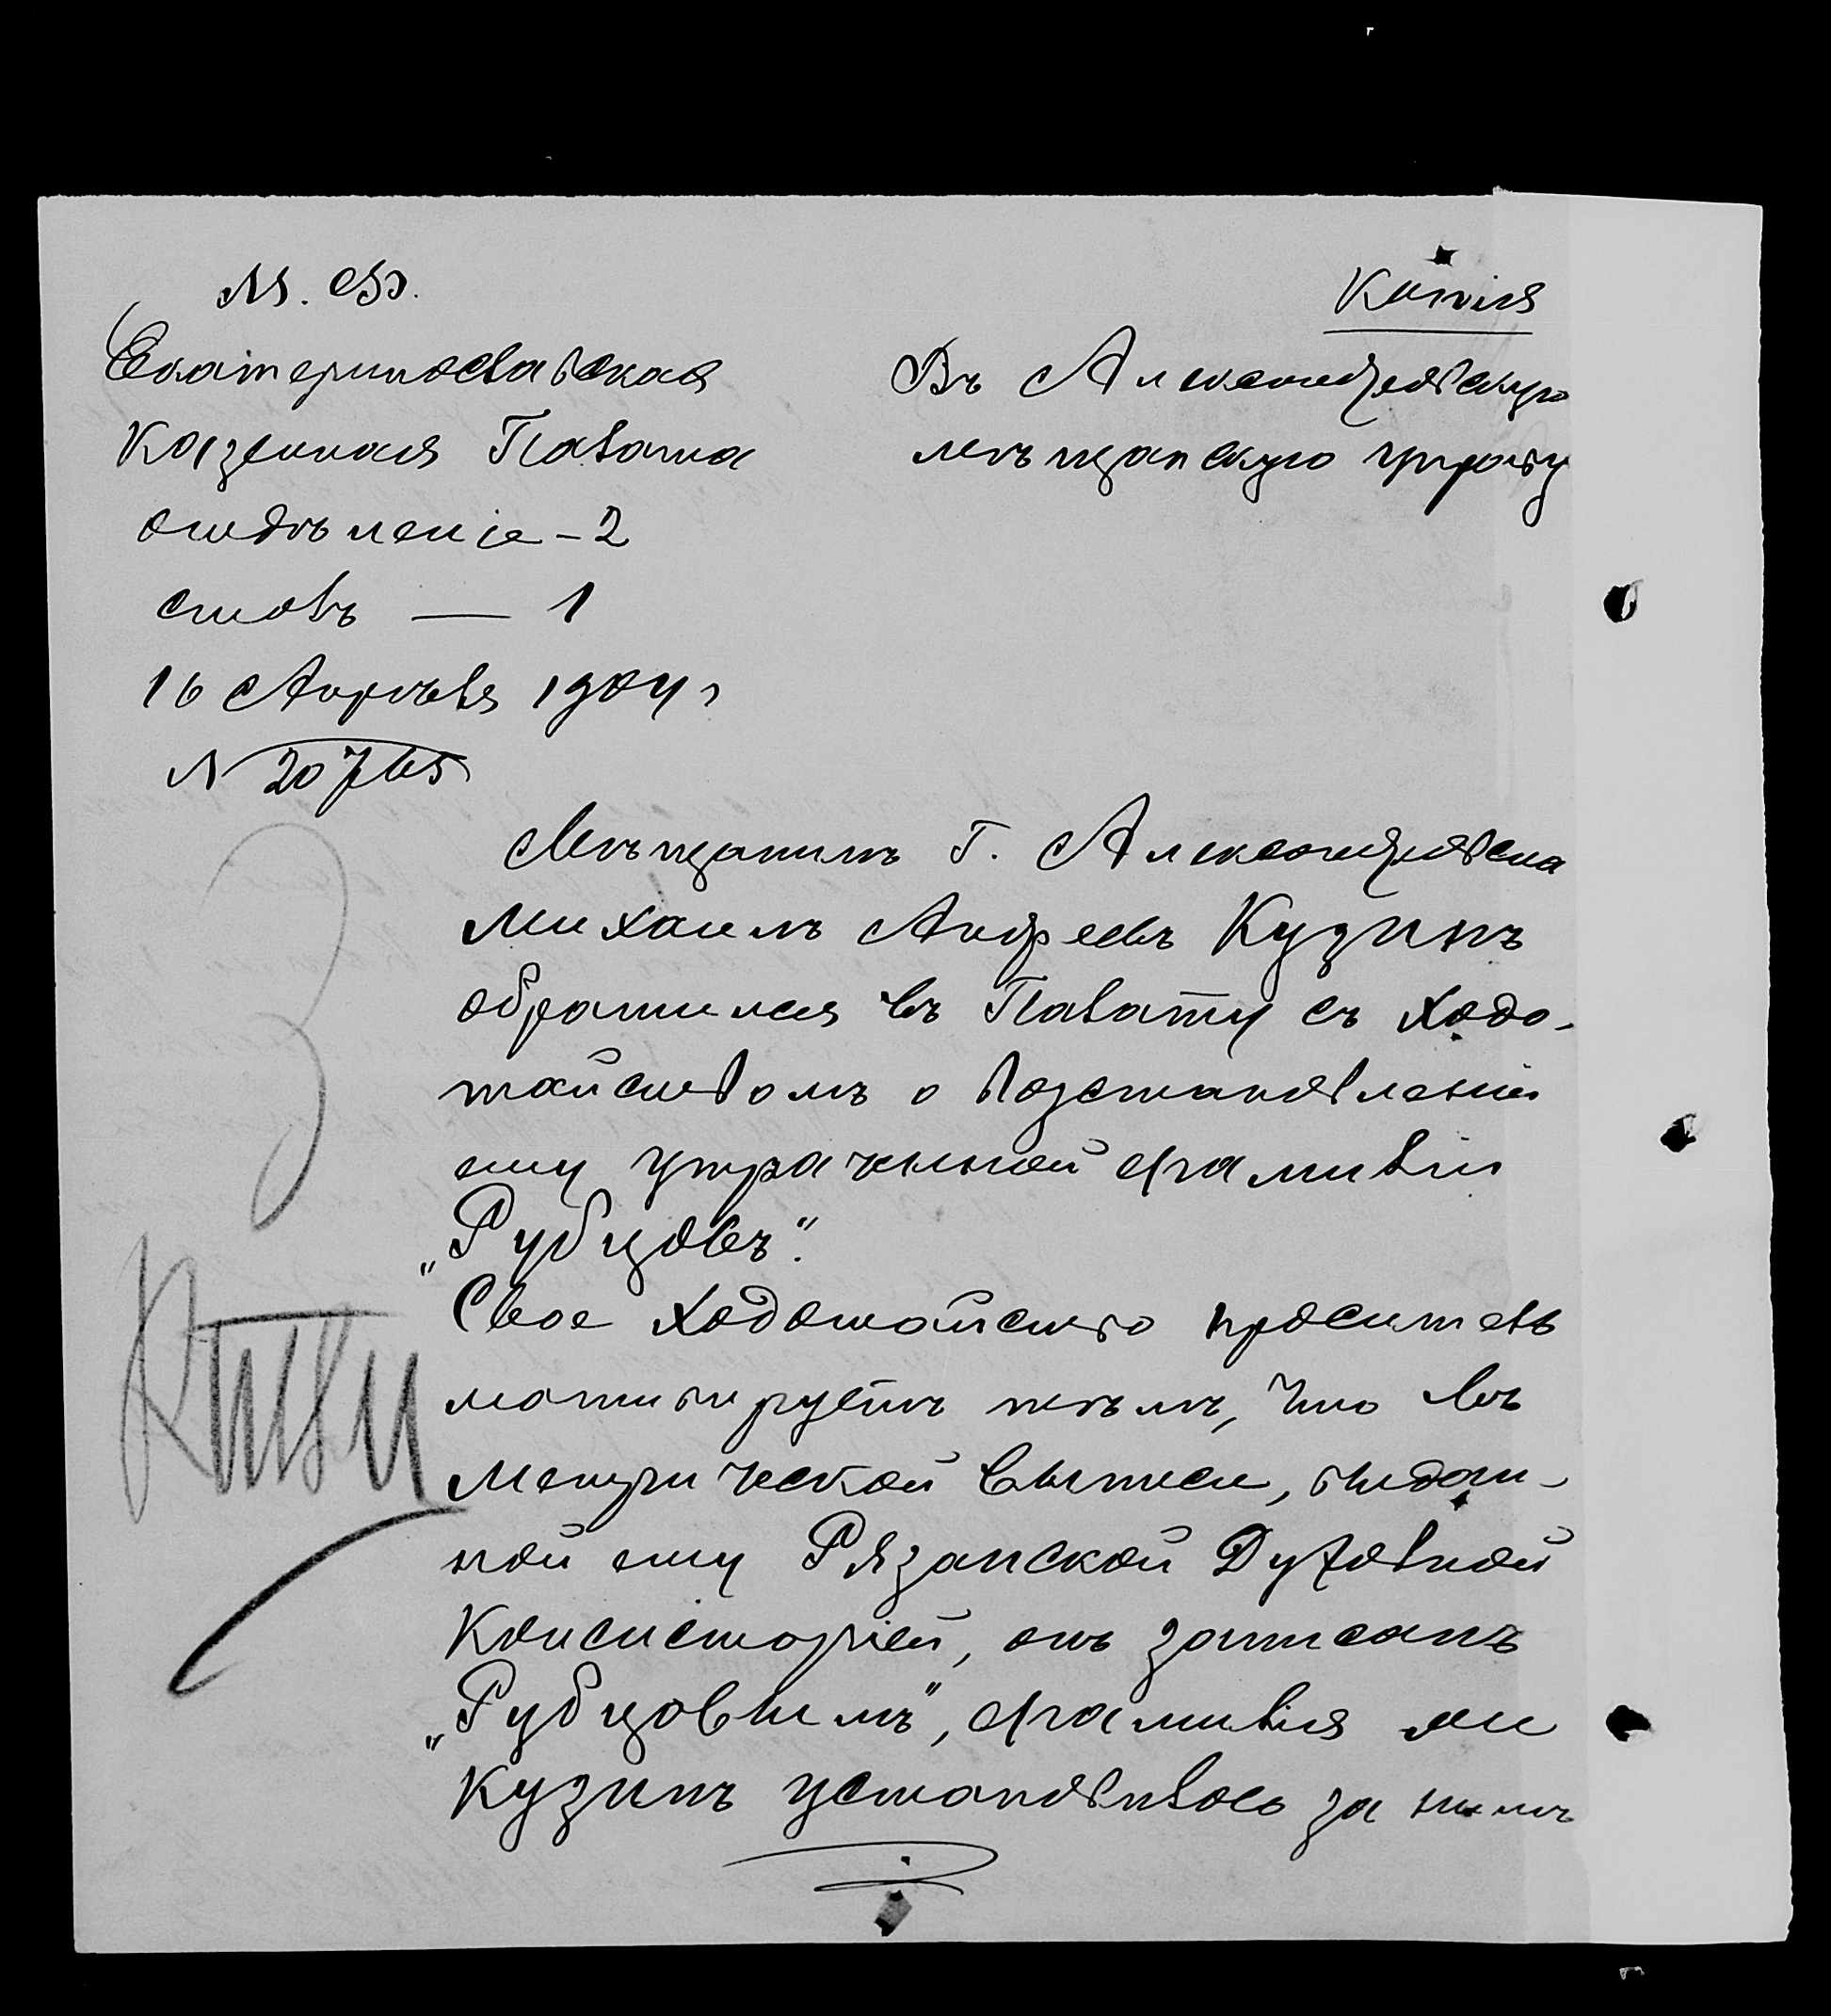 М. Ф.
Копія
Екатеринославская
Казенная Палата
отдѣленіе - 2
столъ — 1
16 Апрѣля 1904 г
N 20765
Въ Александровскую
мѣщанскую управу
Мѣщанинъ г. Александровска
Михаилъ Андреевъ Кузинъ
обратился въ Палату съ ходо-
тайствомъ о возстановленіи
ему утраченной фамиліи
„Рубцовъ“.
Свое ходотайство проситель
мотивируетъ тѣмъ, что въ
метрической выписи, выдан-
ной ему Рязанской Духовной
Консисторіей, онъ записанъ
„Рубцовымъ“, фамилія же
Кузинъ установилось за нимъ